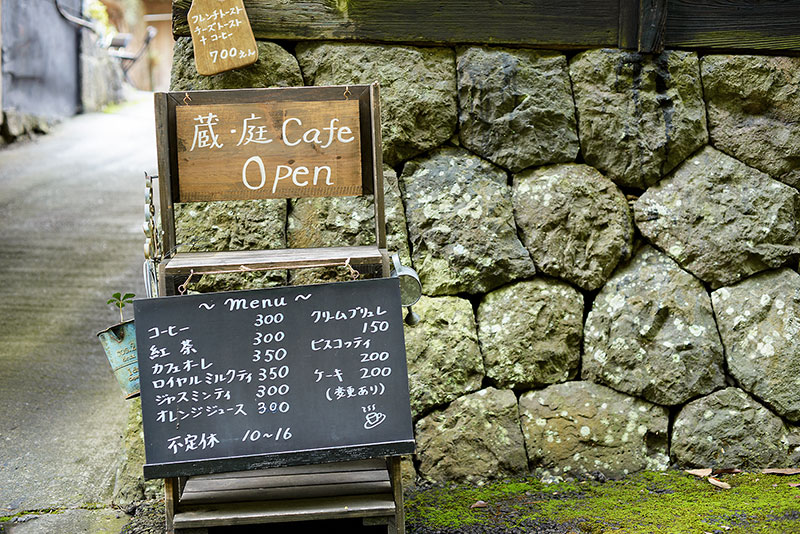 フレンチトースト
チーズトースト
+ コーヒー
700えん
蔵・庭 Cafe
Open
~ menu ~
コーヒー 300
紅茶 300
カフェオーレ 350
ロイヤルミルクティ 350
ジャスミンティ 300
オレンジジュース 300
不定休 10~16
クリームブリュレ
150
ビスコッティ
200
ケーキ 200
(変更あり)